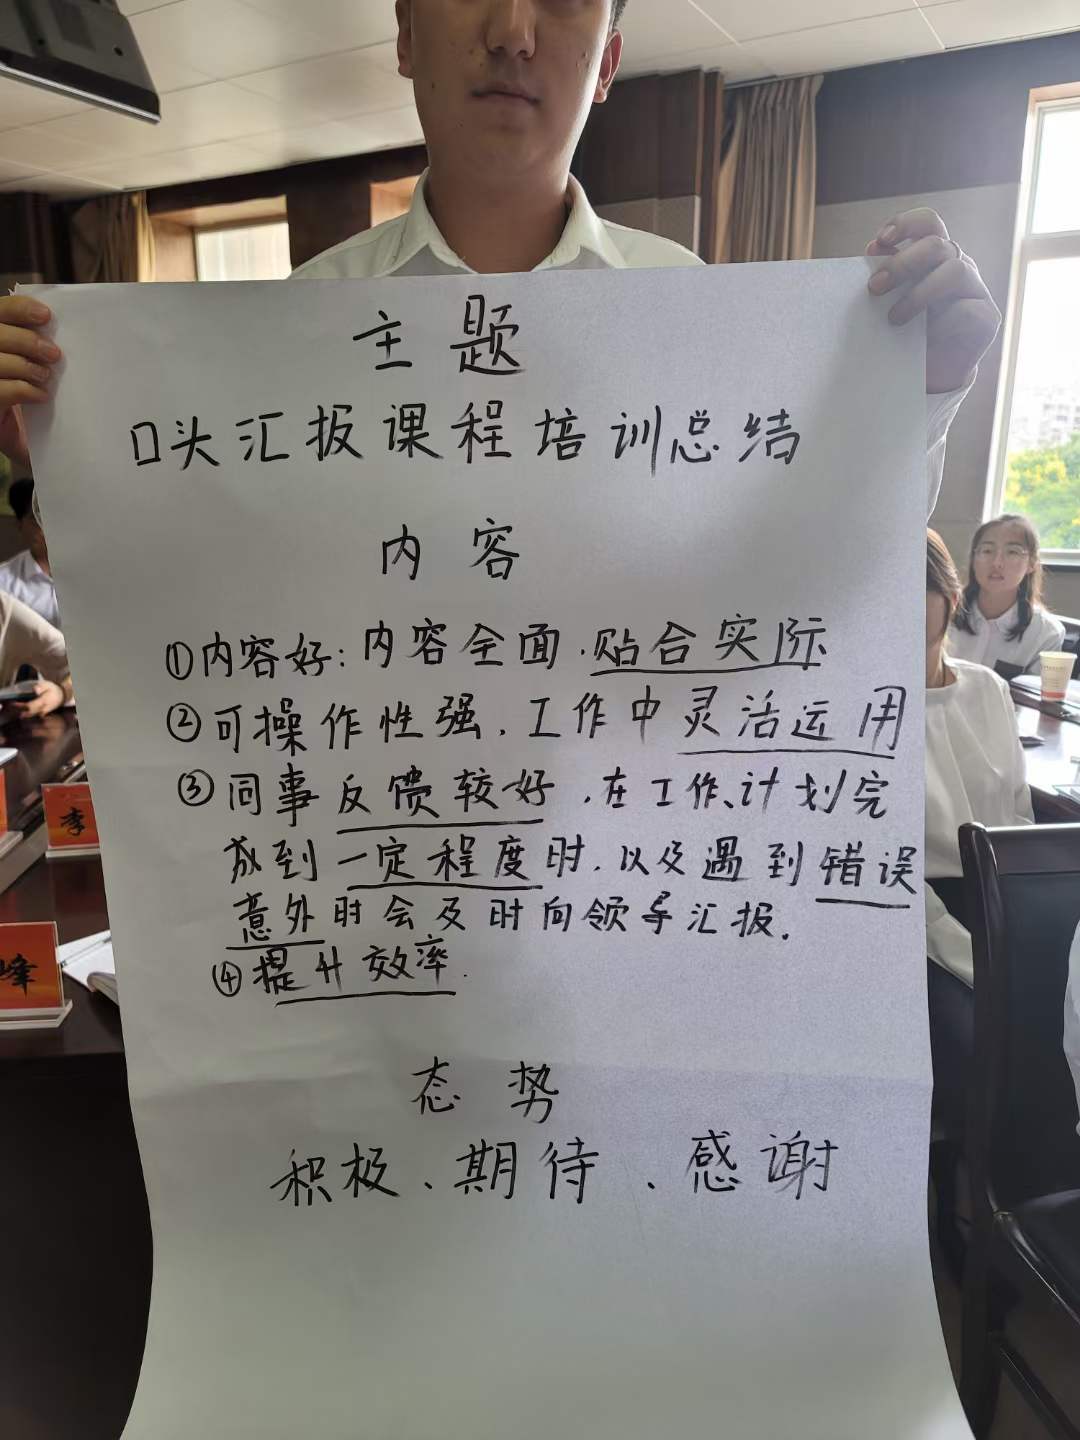 主题
口头汇报课程培训总结
内容
①内容好：内容全面.贴合实际
②可操作性强.工作中灵活运用
③同事反馈较好.在工作、计划完
成到一定程度时.以及遇到错误
意外时会及时向领导汇报.
④提升效率.
态势
积极、期待、感谢
李
峰